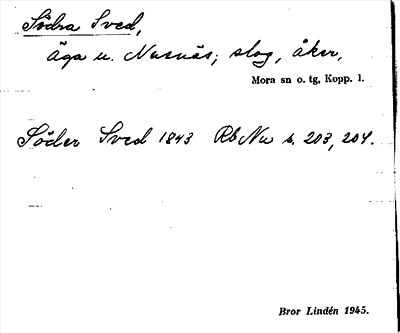 Södra Sved,
äga u. Nusnäs; skog, åker,
Mora sn o. tg, Kopp. l.
Söder Sved 1843 Rb Nu s. 203, 204.
Bror Lindén 1945.